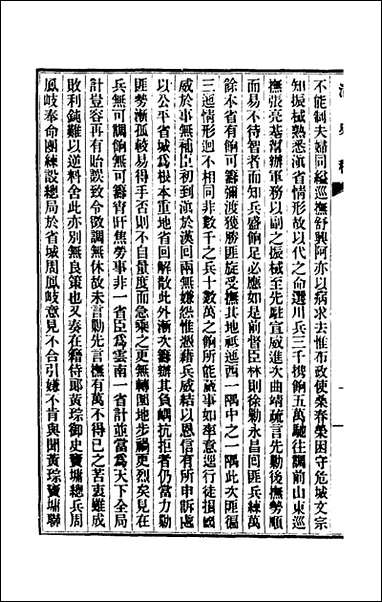 不能制夫婦同縊巡撫舒興阿亦以病求去惟布政使桑春榮困守危城文宗
知振棫熟悉滇省情形故以代之命選川兵三千攜餉五萬馳往調前山東巡
撫張亮基幫辦軍務以副之振棫至先駐宣威進次曲靖疏言先勦後撫勢順
而易不待智者而知兵盛餉足必應如是前督臣林則徐勦永昌回匪兵練萬
餘本省有餉可籌彌渡獲勝匪旋受撫其地祇迤西一隅中之一隅此次匪徧
三迤情形迥不相同非數千之兵十數萬之餉所能蕆事如率意逕行徒損國
威於事無補臣初到滇於漢回兩無嫌怨惟憑藉兵威結以恩信有所申訴處
以公平省城為根本重地省回解散此外漸次籌辦其負嵎抗拒者仍當力勦
匪勢漸孤較易得手否則不自量度而急乘之更無轉圜地步禍更烈矣見在
兵無可調餉無可籌宵旰焦勞事非一省臣為雲南一省計並當為天下全局
計豈容再有貽誤致令徵調無休故未言勦先言撫有萬不得已之苦衷雖成
敗利鈍難以逆料舍此亦別無良策也又奏在籍侍郎黃琮御史竇墉總兵周
鳳岐奉命團練設總局於省城周鳳岐意見不合引嫌不肯與聞黃琮竇墉聯